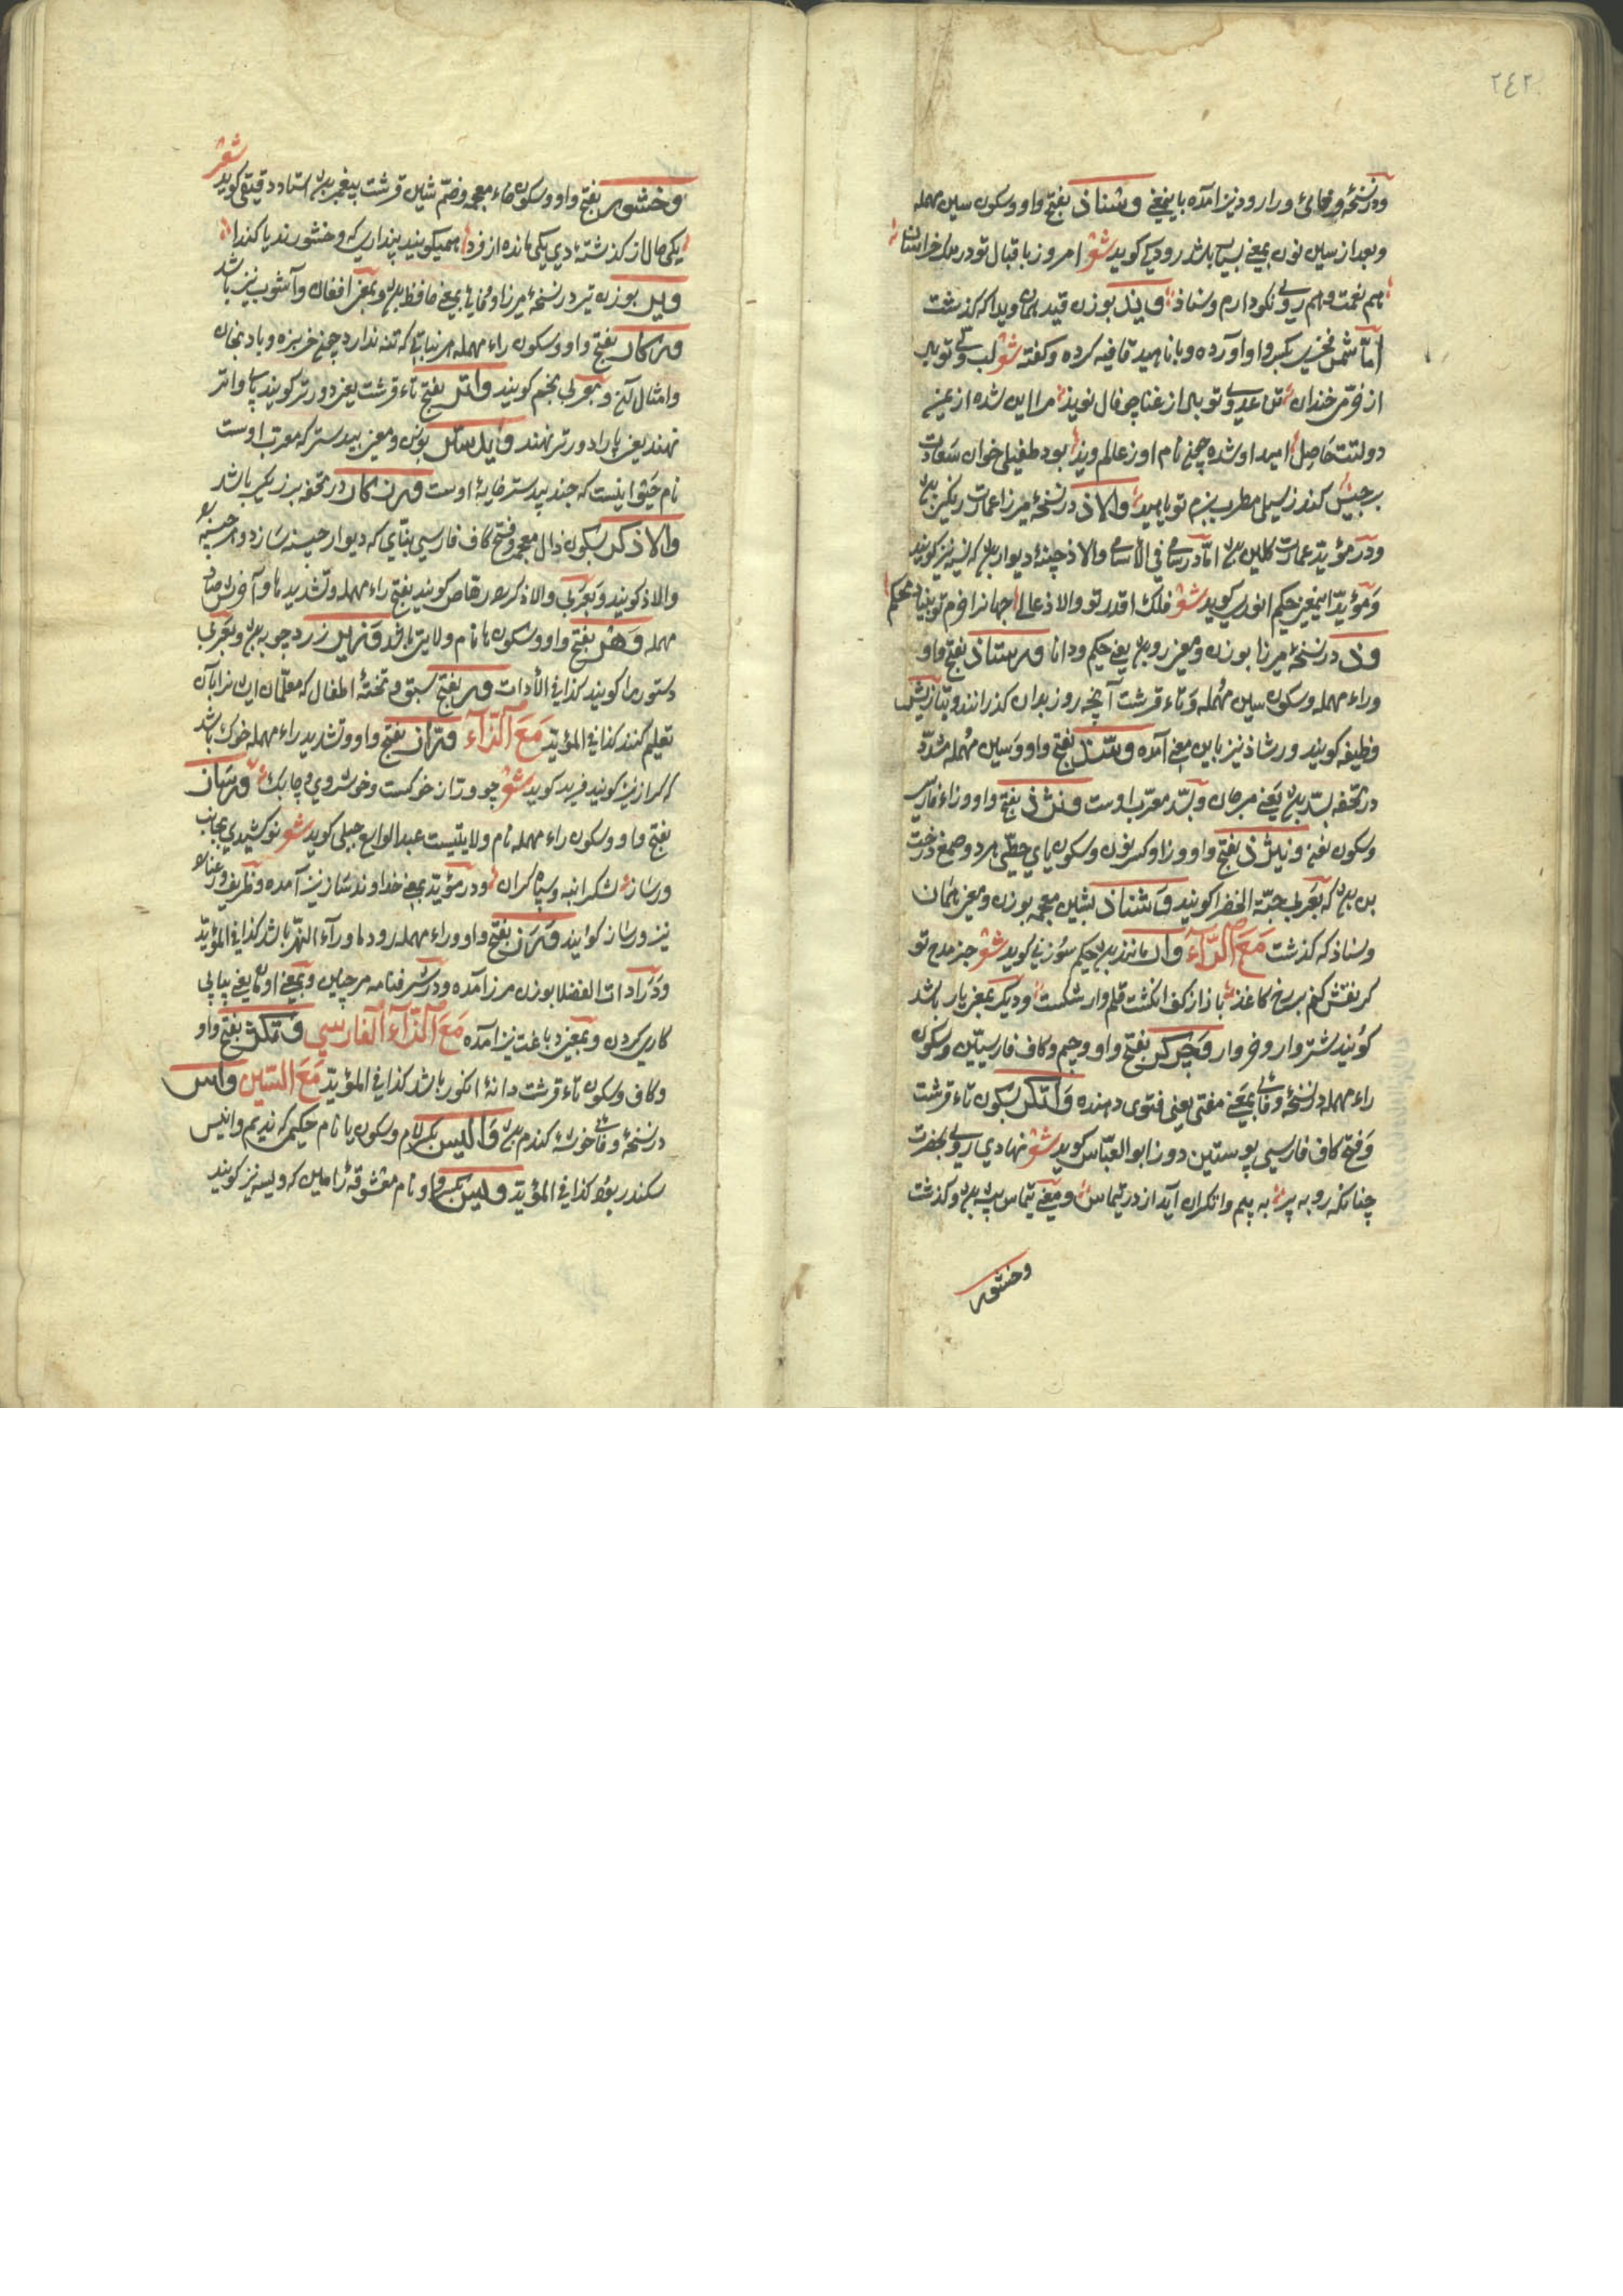 ٢٤٢
ودر نسخهٔ ورا رود نیز آمده باینمعنی وشناذ بفتح واو وسکون سین مهمله
وبعد از سین نون بمعنی بسیار باشد رودکی کوید شعر امروز باقبال تو در ملک خراسان
هم نعمت وهم روی نکو دارم وسناذ ویذ بوزن قید همان ویدا که کذشت
اما شمس فخری بکسر واو آورده وبا ناهید قافیه کرده وکفته شعر لب ولی تو باد
از خرمی خندان تن عدوی تو باد از عنا چو نال نویذ مرا این شده از یمن
دولتت حاصل امید او شده چون نام او ز عالم ویذ بود طفیلی خوان سعادت
برجیس کند ز سیلی مطرب بزم تو ناهید والاذ در نسخهٔ میرزا عمارت رنکین بود
ودر مؤید عمارت کلین بود اما در سامی فی الأسامی والاذ چینهٔ دیوار بود که نسبه نیز کویند
ومؤید اینمعنی حکیم انوری کوید شعر فلک اقدر تو والاذ عالی جهانرا حزم تو بنیاد محکم
وذ در نسخهٔ میرزا بوزن ومعنی رد بود یعنی حکیم ودانا ورستاذ بفتح واو
وراء مهمله وسکون سین مهمله وتاء قرشت آنچه روز بدان کذرانند وبتازیش
وظیفه کویند ورشاذ نیز باین معنی آمده وسّذ بفتح واو وسین مهمله مشدّد
در تحفه بسّد بود یعنی مرجان وبسّد معرب اوست ونژذ بفتح واو وزاء فارسی
وسکون نون ونیژذ بفتح واو وزا وکسر نون وسکون یای حطّی هر دو صمغ درخت
بن بود که بعربی حبّة الخضرا کویند وشناذ بشین معجمه بوزن ومعنی همان
وسناذ که کذشت مَعَ الرّآءِ وار مانند بود حکیم سوزنی کوید شعر جز مدح تو
کر نقش کنم بر رخ کاغذ باذ از کف انکشت قلم وار شکست ودیکر بمعنی بار باشد
کویند شتروار وخروار وجرکر بفتح واو وجیم وکاف فارسیین وسکون
راء مهمله در نسخهٔ وفائی بمعنی مفتی یعنی فتوی دهنده واتکر بسکون تاء قرشت
وفتح کاف فارسی پوستین دوز ابو العبّاس کوید شعر نهادی روی بحضرت
چنانکه روبه پیر به پیم واتکران آید از در تیماس ومعنی تیماس بیشه بود وکذشت
وخشور
وخشور بفتح واو وسکون خاء معجمه وضمّ شین قرشت پیغمبر بود استاد دقیقی کوید شعر
یکی حال از کذشته دی یکی مانده از فردا همیکویند پنداری که وخشورند یا کندا
ویر بوزن تیر در نسخهٔ میرزا وفائی بمعنی حافظه بود وبمعنی افغان وآشوب نیز باشد
ورکار بفتح واو وسکون راء مهمله هر نباتی که تنه ندارد چون خربزه وبادنجان
وامثال آن وبعربی نجم کویند واتر بفتح تاء قرشت یعنی دورتر کویند پای واتر
نهند یعنی پا را دورتر نهند وایدستر بوزن ومعنی بیدستر که معرب اوست
نام حیوانیست که جند بیدستر خایهٔ اوست ورزکار در تحفه برزیکر باشد
والاذکر بسکون ذال معجمه وفتح کاف فارسی بنّایی که دیوار چینه سازد وآن چینه را
والاذ کویند وبعربی والاذکر را رهاص کویند بفتح راء مهمله وتشدید ها وآخرش صاد
مهمله وهر بفتح واو وسکون ها نام ولایتی باشد وزیر زردچوبه بود وبعربی
دستور را کویند کذا فی الأدات ور بفتح سبق وتختهٔ اطفال که معلّمان ایشانرا بآن
تعلیم کنند کذا فی المؤید مَعَ الزّآءِ ورّاز بفتح واو وتشدید راء مهمله خوک باشد
که کراز نیز کویند فرید کوید شعر چو وراز خوکست وخوش روی وچابک ورساز
بفتح واو وسکون راء مهمله نام ولایتیست عبد الواسع جبلی کوید شعر تو کشیدی بجانب
ورساز لشکر انبه وسپاه کران ودر مؤید بمعنی خداوند ساز نیز آمده وظریف ورعنا را
نیز ورساز کویند ورز بفتح واو وراء مهمله رود ماورآء النهر باشد کذا فی المؤید
ودر ادات الفضلا بوزن مرز آمده ودر شرفنامه مرچین وبمعنی اول یعنی پیاپی
کاری کردن وبمعنی دباغت نیز آمده مَعَ الزّآءِ الفارسی وتکژ بفتح واو
وکاف وسکون تاء قرشت دانهٔ انکور باشد کذا فی المؤید مَعَ السّین واس
در نسخهٔ وفائی خوشهٔ کندم بود والیس بکسر لام وسکون یا نام حکیمی که ندیم وانیس
سکندر بود کذا فی المؤید ویس بکسر واو نام معشوقهٔ رامین که ویسه نیز کویند